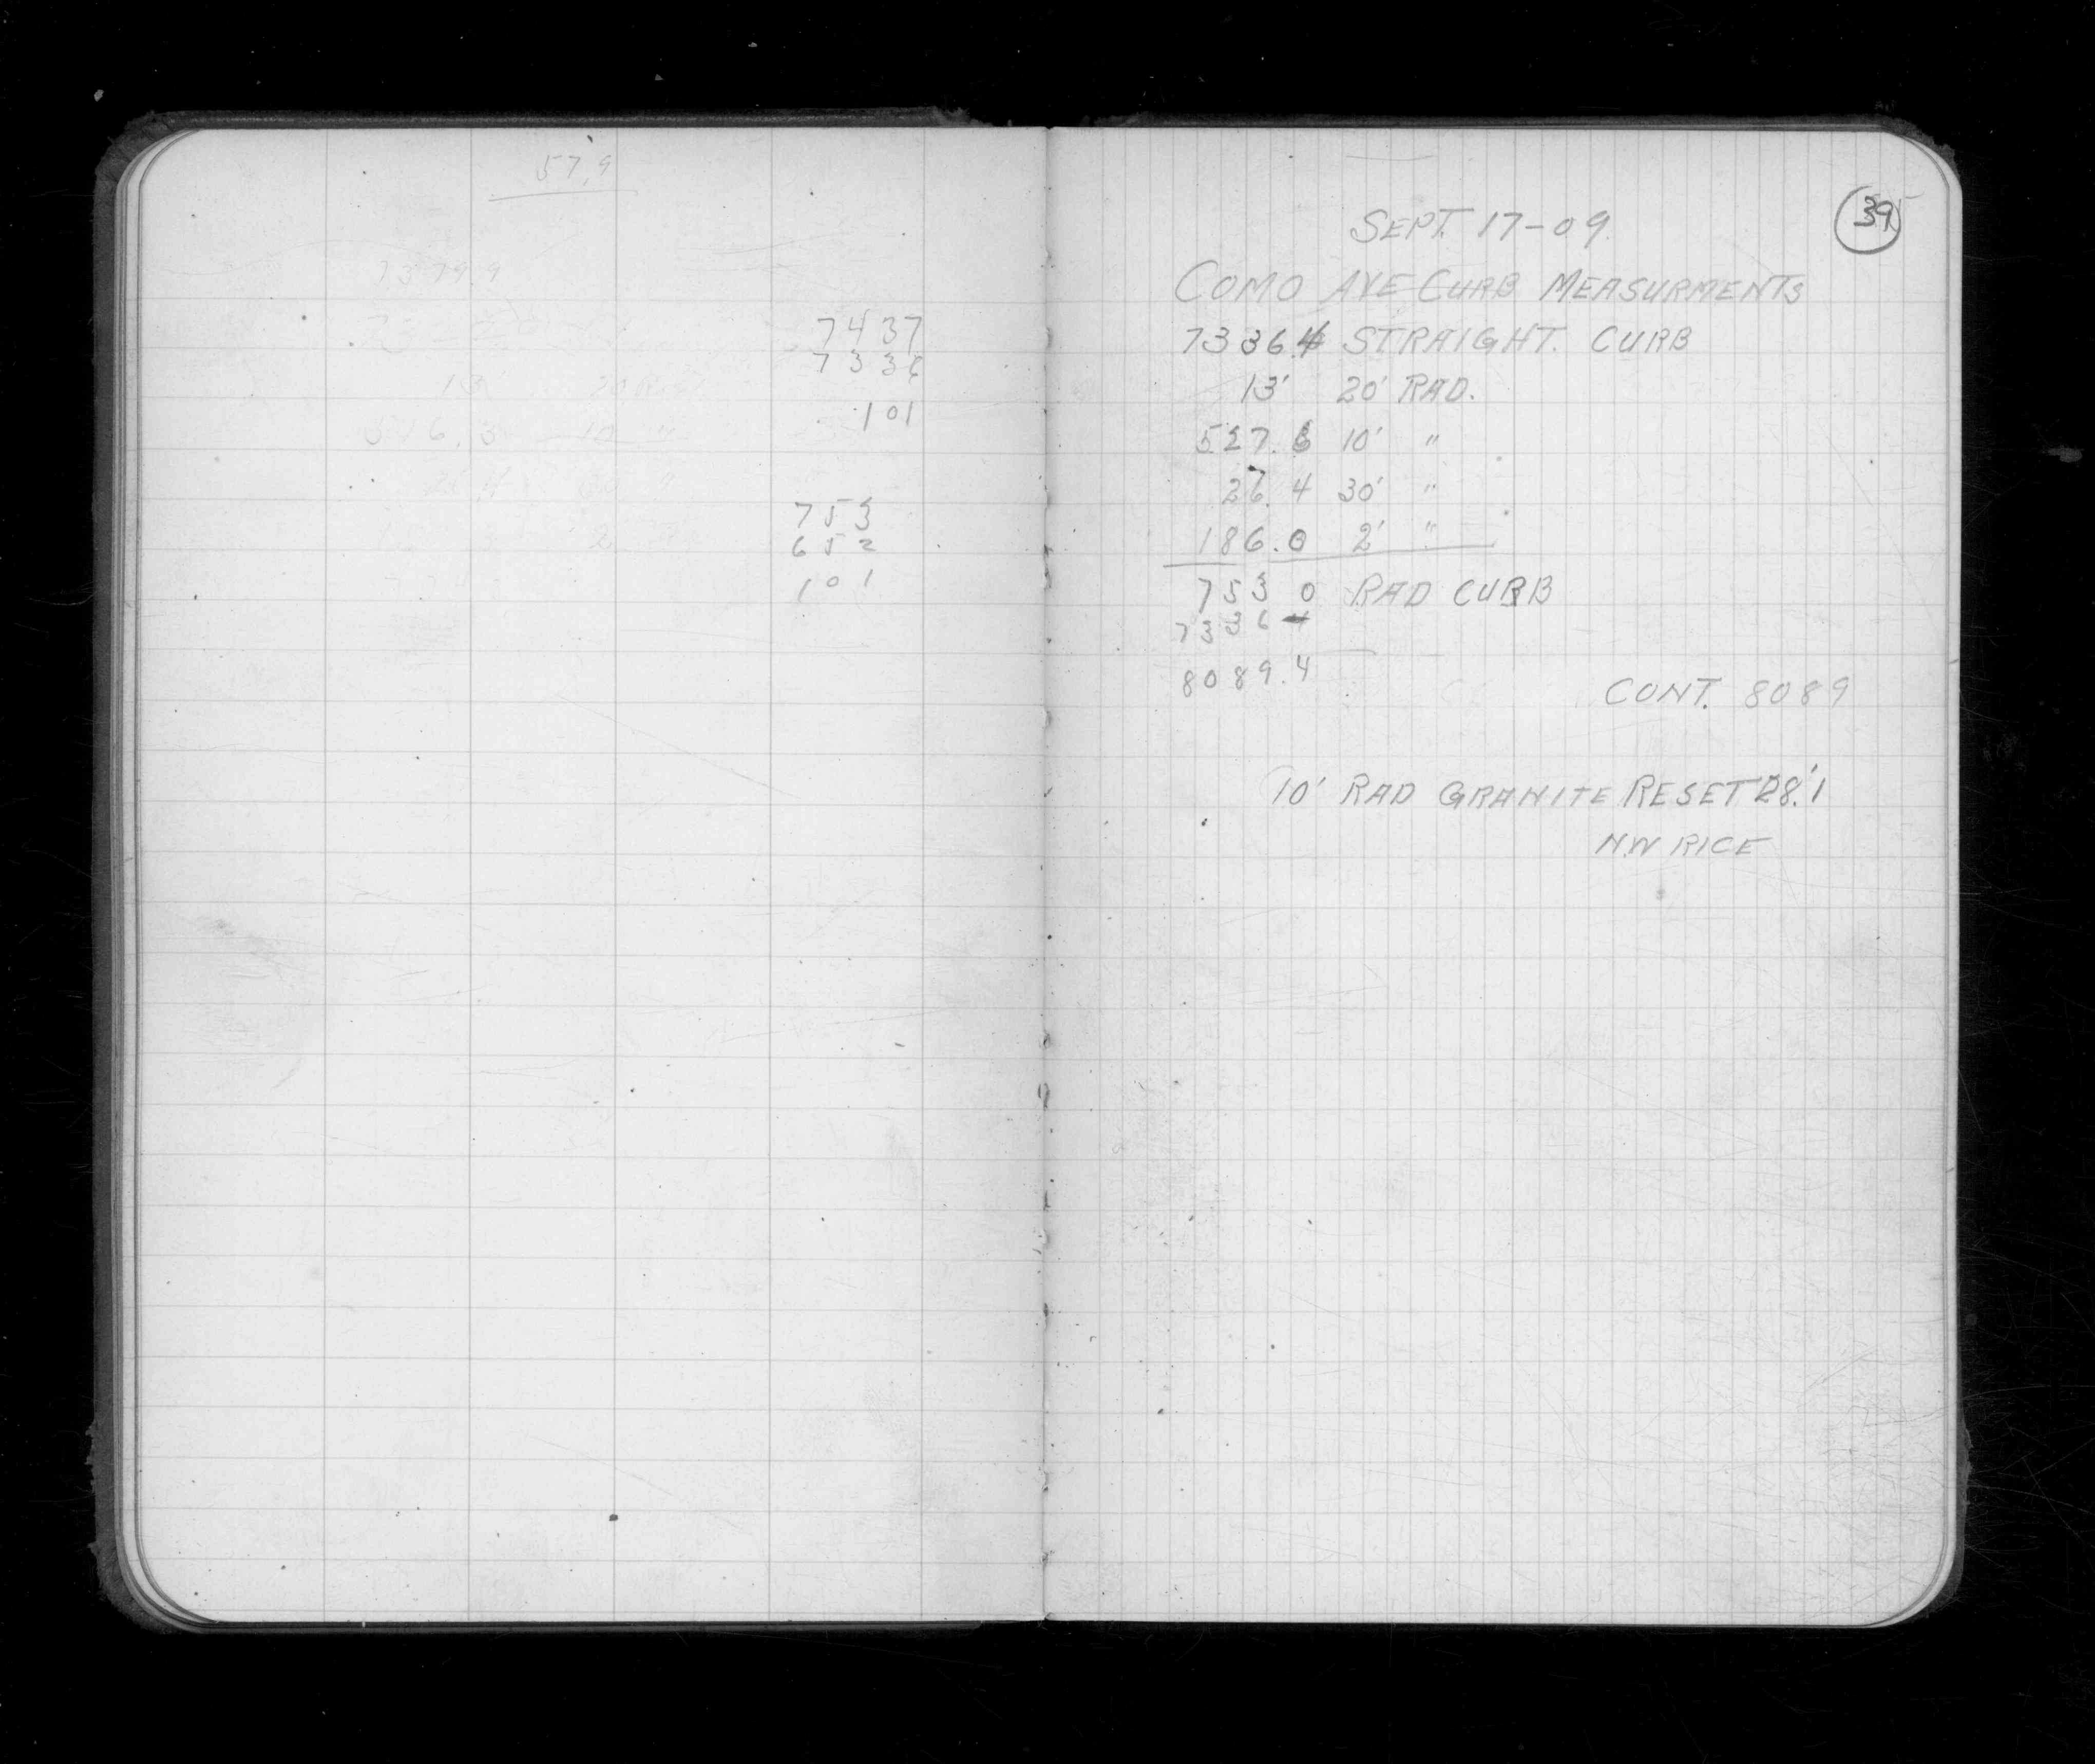 57.9
7379.9
13' 20' Rad
516.3 10 "
7437
7336
101
753
652
101
39
SEPT. 17-09
COMO AVE CURB MEASURMENTS
7336.4 STRAIGHT. CURB
13' 20' RAD.
527.6 10' "
26.4 30' "
186.0 2' "
753 0 RAD CURB
7336 4
8089.4
CONT. 8089
10' RAD GRANITE RESET 28.'1
N.W RICE